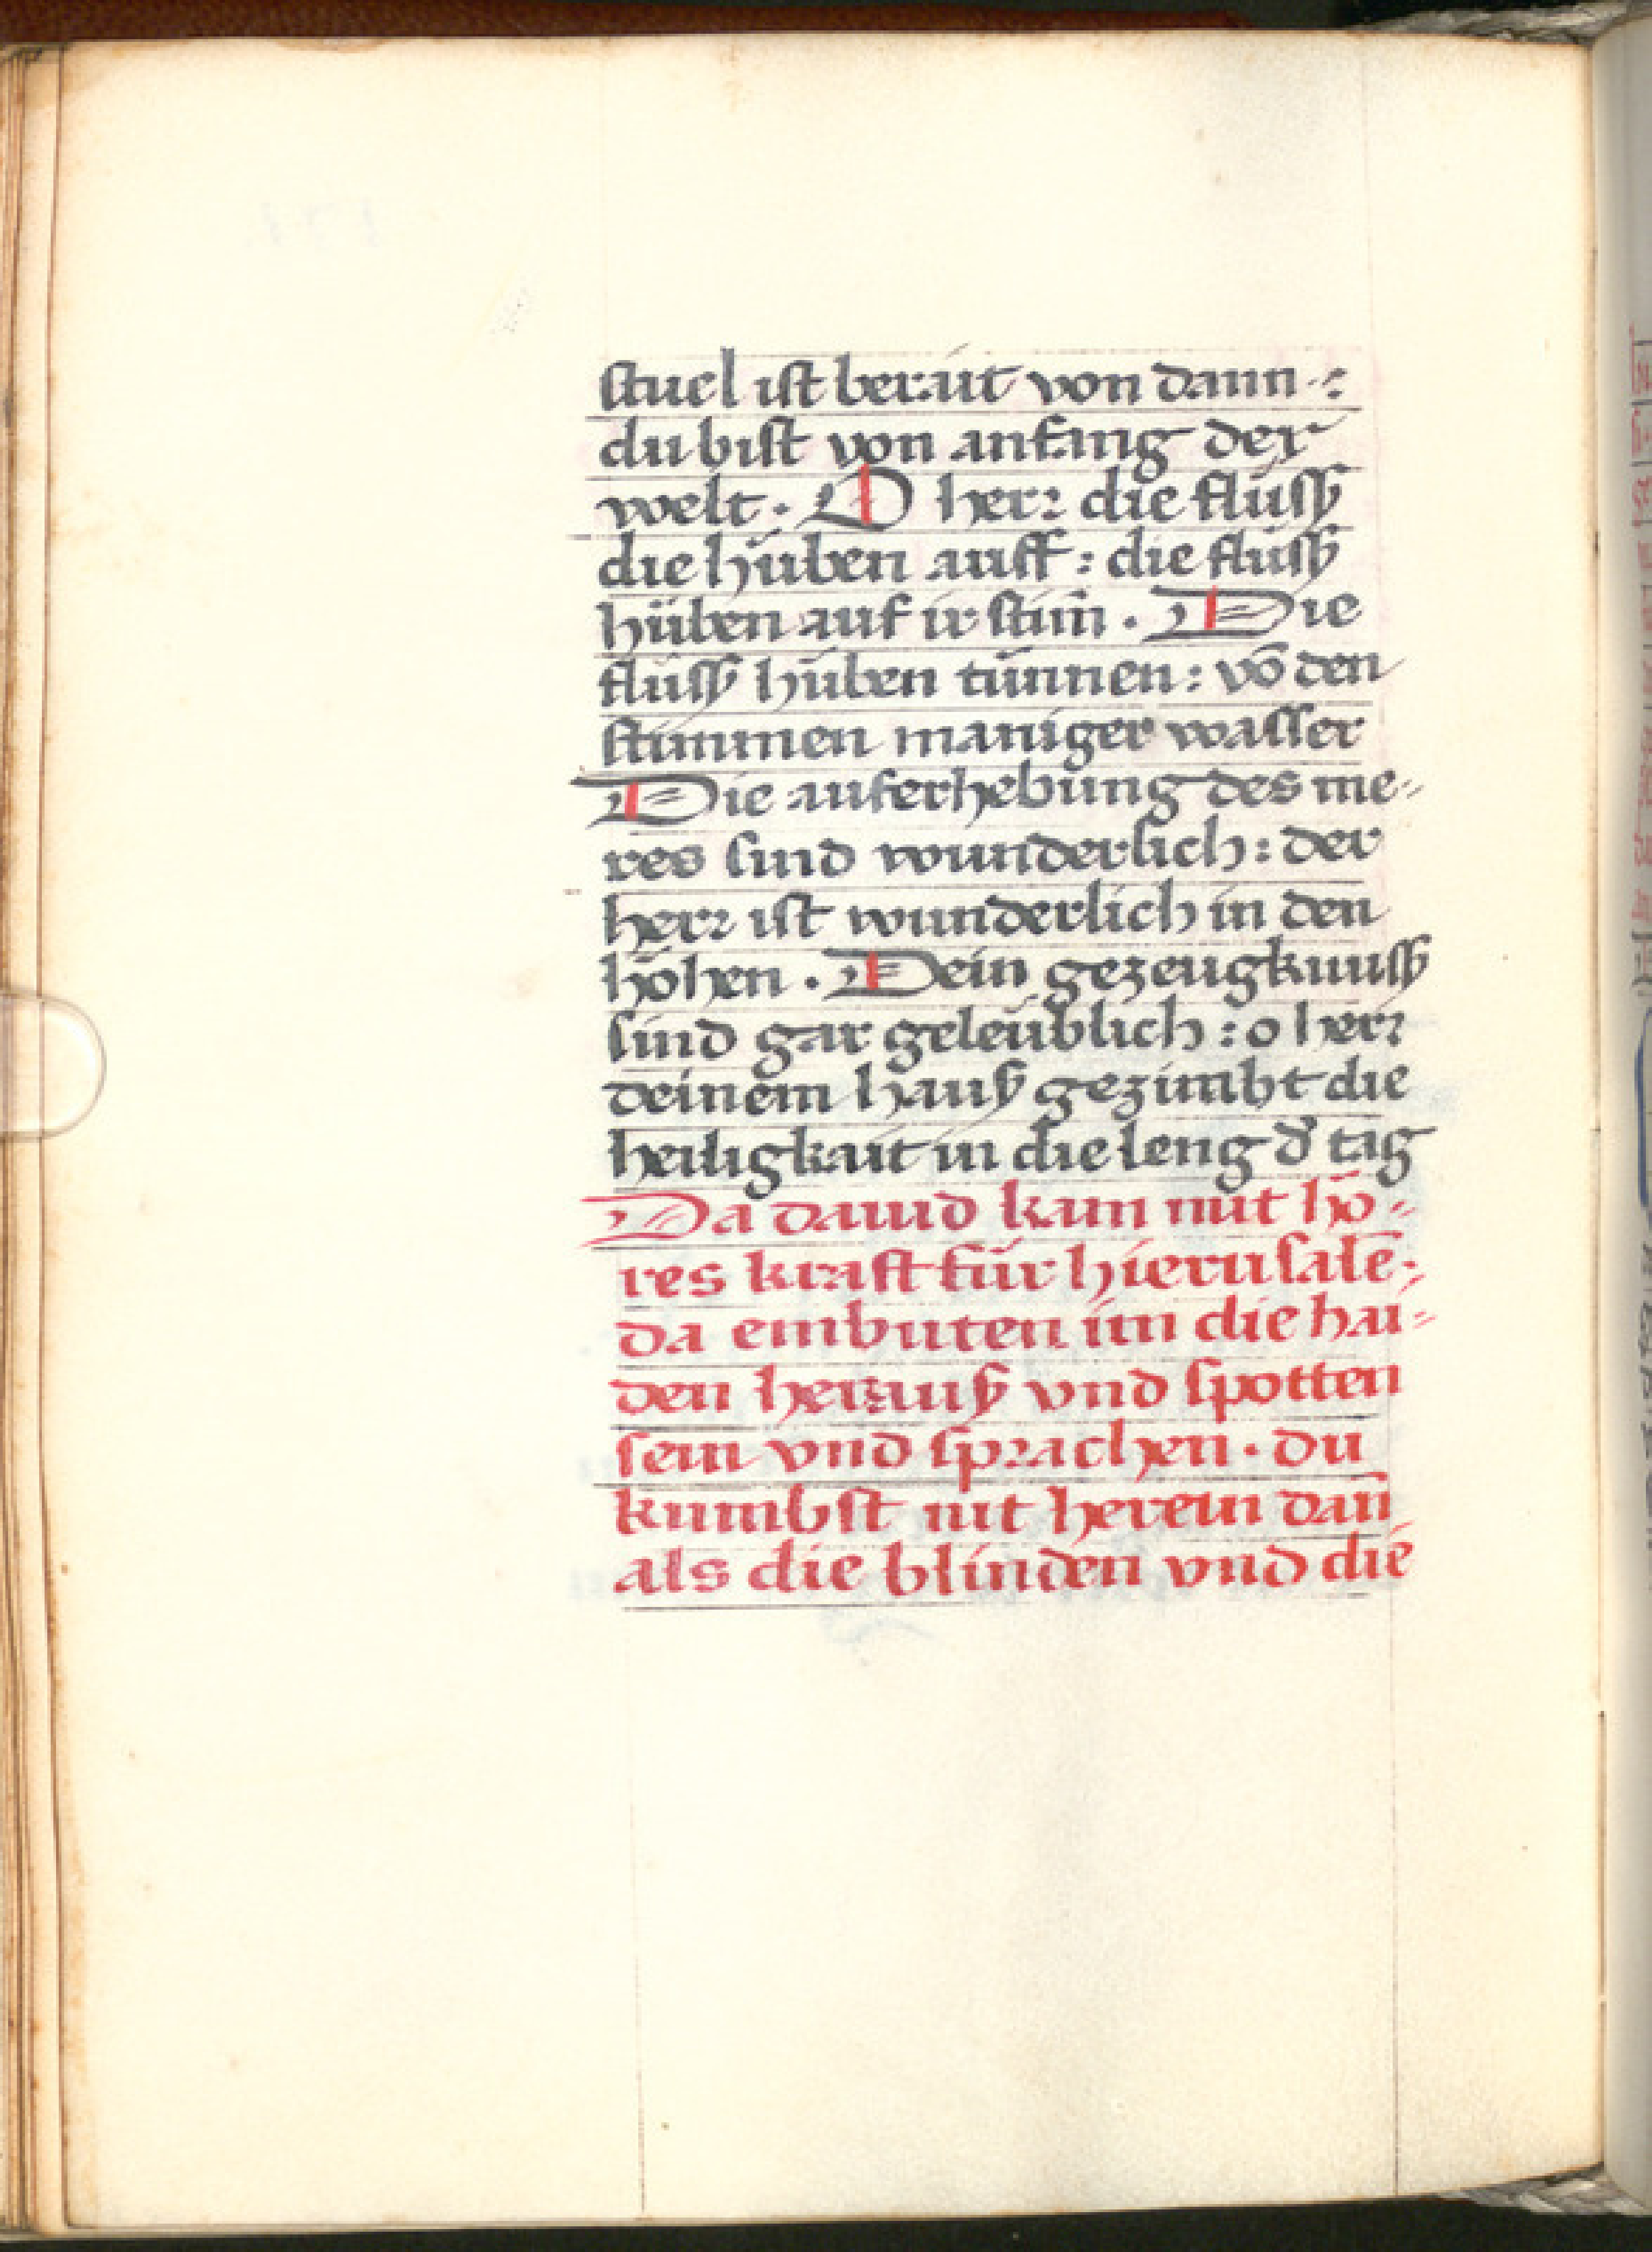 stuel ist berait von dann :
du bist von anfang der
welt . O herr die flüss
die hüben auff : die flüss
hüben auf ir stim̄ . Die
flüss hüben tünnen : vō den
stimmen maniger wasser
Die auferhebung des me-
res sind wunderlich : der
herr ist wunderlich in den
höhen . Dein gezeugknuss
sind gar geleüblich : o herr
deinem hauß gezimbt die
heiligkait in die leng d̓ tag
Da dauid kam mit hö-
res kraft für hierusalē .
da embuten im die hai-
den herauß vnd spotten
sein vnd sprachen . du
kumbst nit herein dan̄
als die blinden vnd die